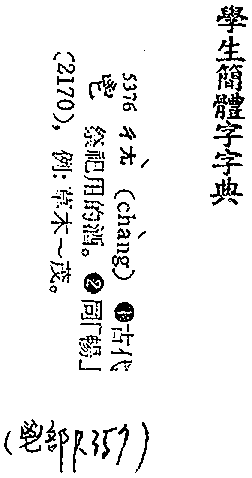 學生簡體字字典
5376 ㄔㄤˋ (chàng) ❶古代
鬯 祭祀用的酒。❷同「暢」
(2170)，例：草木～茂。
(鬯部P.359)